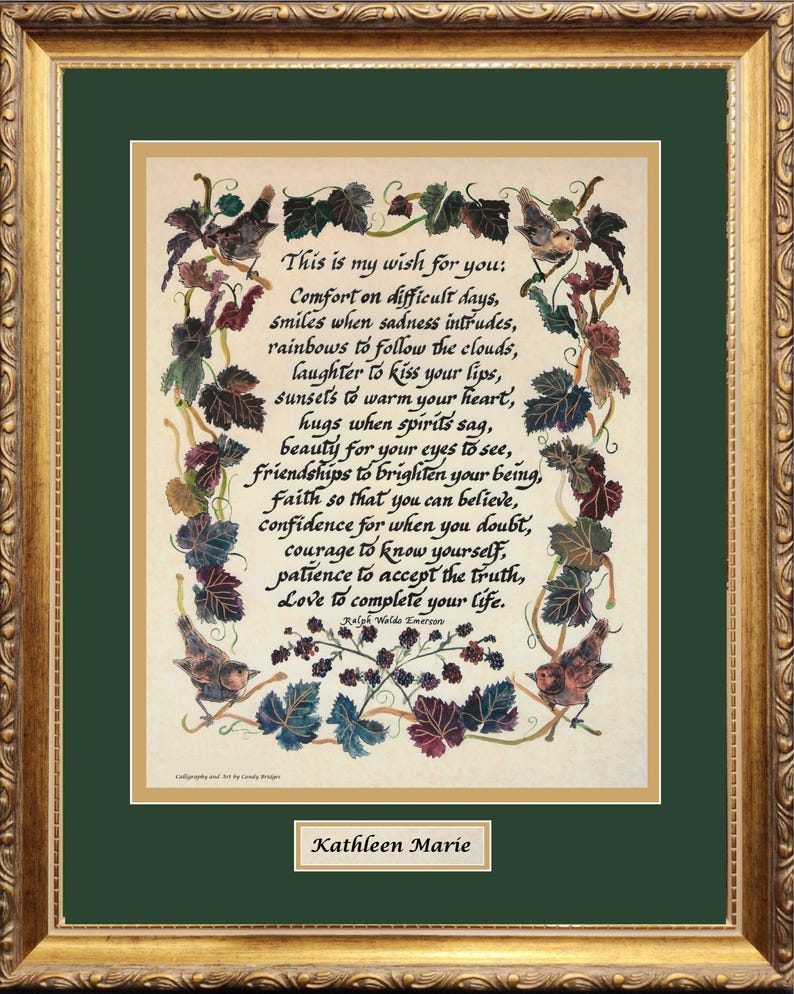 This is my wish for you:
Comfort on difficult days,
smiles when sadness intrudes,
rainbows to follow the clouds,
laughter to kiss your lips,
sunsets to warm your heart,
hugs when spirits sag,
beauty for your eyes to see,
friendships to brighten your being,
faith so that you can believe,
confidence for when you doubt,
courage to know yourself,
patience to accept the truth,
Love to complete your life.
Ralph Waldo Emerson
Calligraphy and Art by Candy Bridges
Kathleen Marie